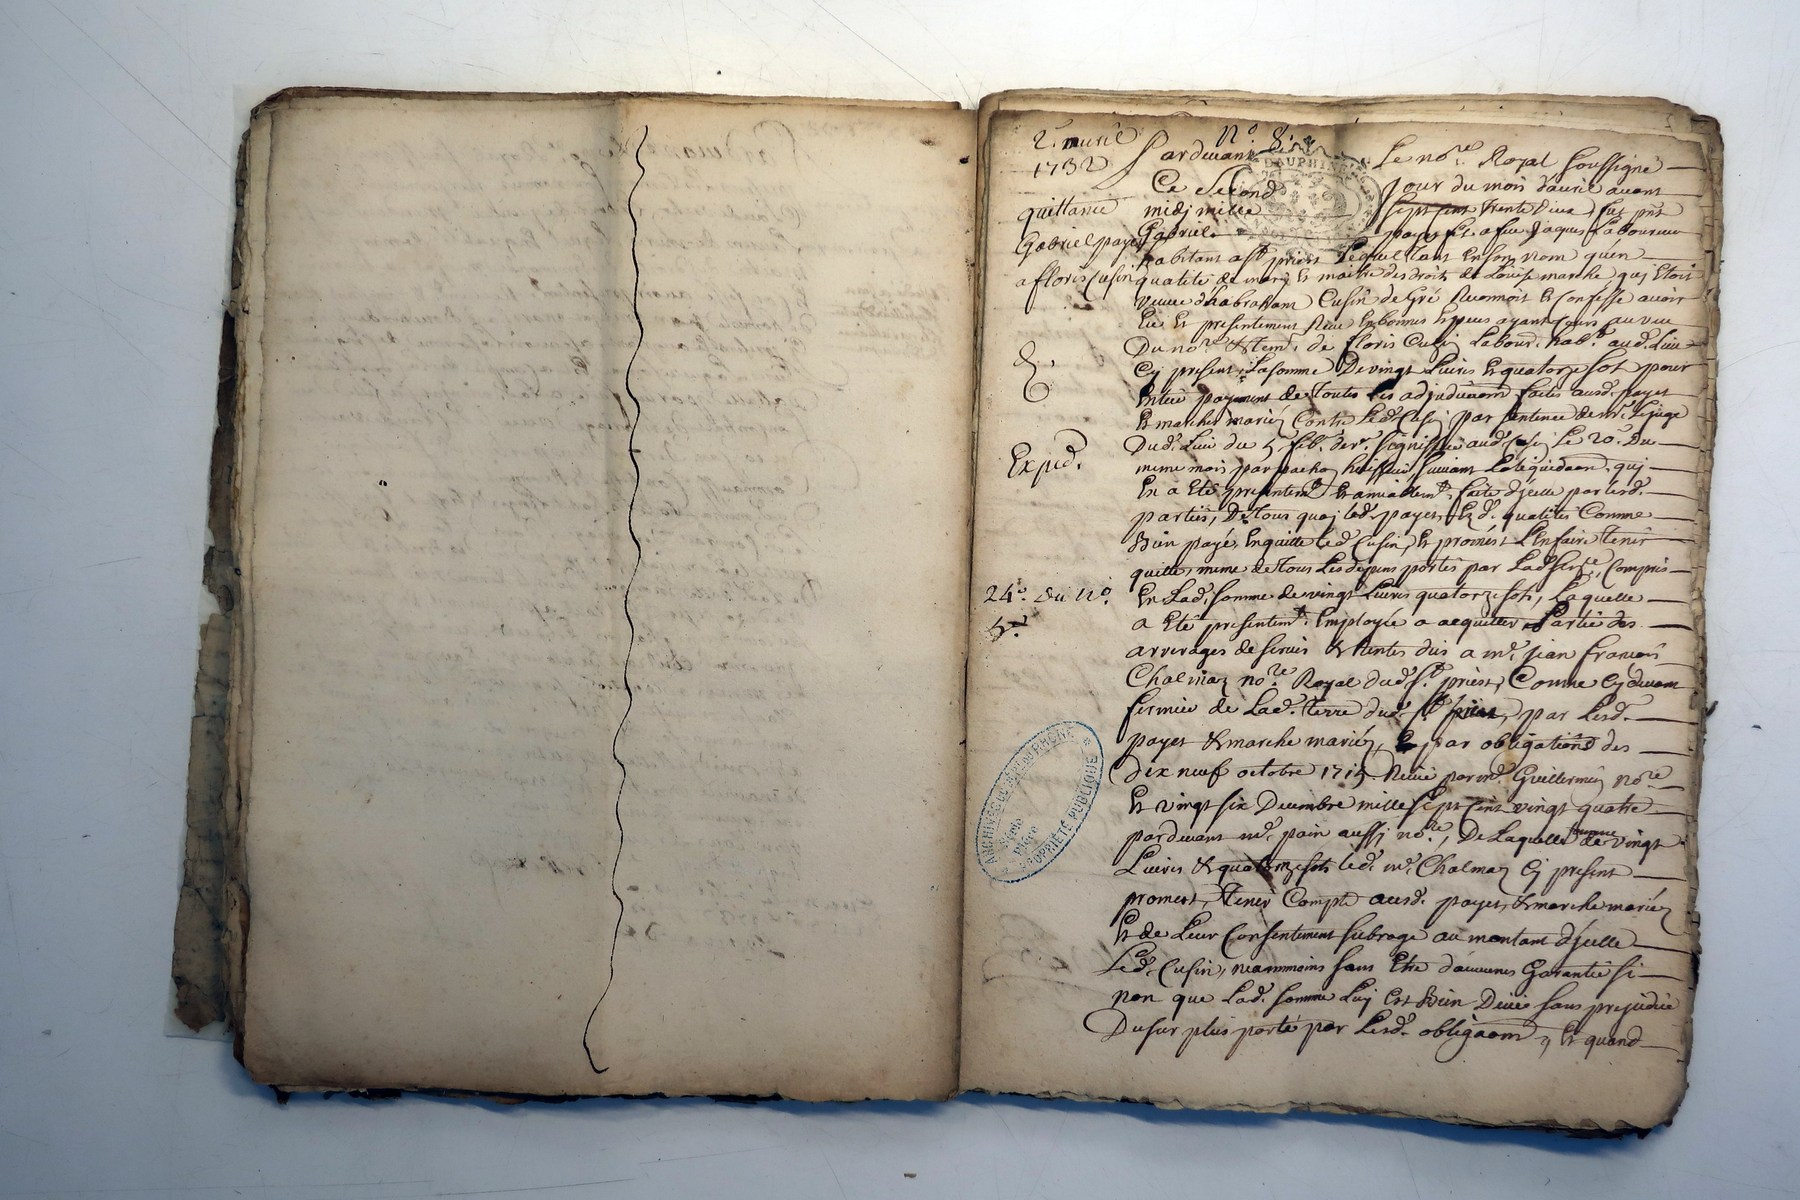 2.e avril
1732
quittance
Gabriel payet
a floris Cusin
Exped.
24.e du N.o
N.o 8.
DAUPHINE
Pardevant Le no.re Royal soussigné
Ce second jour du mois d'avril avant
midj mille sept cent trente deux, fut p.nt
Gabriel payet f. a feu Jaques Laboureur
habitant a S.t priest Lequel tant En son nom qu'en
qualité de mary Et maitre des droits de Louise marche quj Etoit
veuve d'habraham Cusin de Gré Reconnoit Et Confesse avoir
Eu Et presentement Reçu En bonnes Especes ayant Cours au veu
Du no.re & tem.s de floris Cusin Labour. hab.t aud. Lieu
Cy present, La somme De vingt Livres Et quatorze sols pour
Entier payement de toutes les adjudicaõns faites ausd. payet
Et marche mariez Contre Led. Cusin par sentence de m.r Le juge
Dud. Lieu du 5 feb. der. signiffiée aud. Cusin Le 20.e Du
meme mois par huissier suivant La liquidaõn quj
En a Eté presentem.t Et amiablem.t faite d'jcelle par lesd.
parties, De tous quoj led. payet, Esd. qualités Comme
Bien payé, En quitte led. Cusin, Et promet L'En faire tenir
quitte, meme de tous Les depens portés par Lad. Sen.ce, Compris
En Lad. somme de vingt Livres quatorze sols, Laquelle
a Eté presentem.t Employée a acquitter Partie des
arrerages de servis & Rentes dûs a m.e jean françois
Chalmaz no.re Royal dud. S.t priest, Comme Cy devant
fermier de Lad. terre dud. S.t priest, par Lesd.
payet & marche mariez, Et par obligations des
dix neuf octobre 1715 Reçüe par m.e Guillermin no.re
Et vingt six Decembre mille sept cent vingt quatre
pardevant m.e pain aussj no.re, De Laquelle somme de vingt
Livres & quatorze sols led. m.e Chalmaz Cj present
promet, tenir Compte ausd. payet, & marche mariez
Et de Leur Consentement subroge au montant d'jcelle
Led. Cusin, neanmoins sans Etre d'aucunes Garantie si
non que Lad. somme Luj Est Bien Deüe sans prejudice
Du sur plus porté par Lesd. obligaõns, Et quand
ARCHIVES DU DEPT DU RHONE
PROPRIÉTÉ PUBLIQUE
Série
Pièce